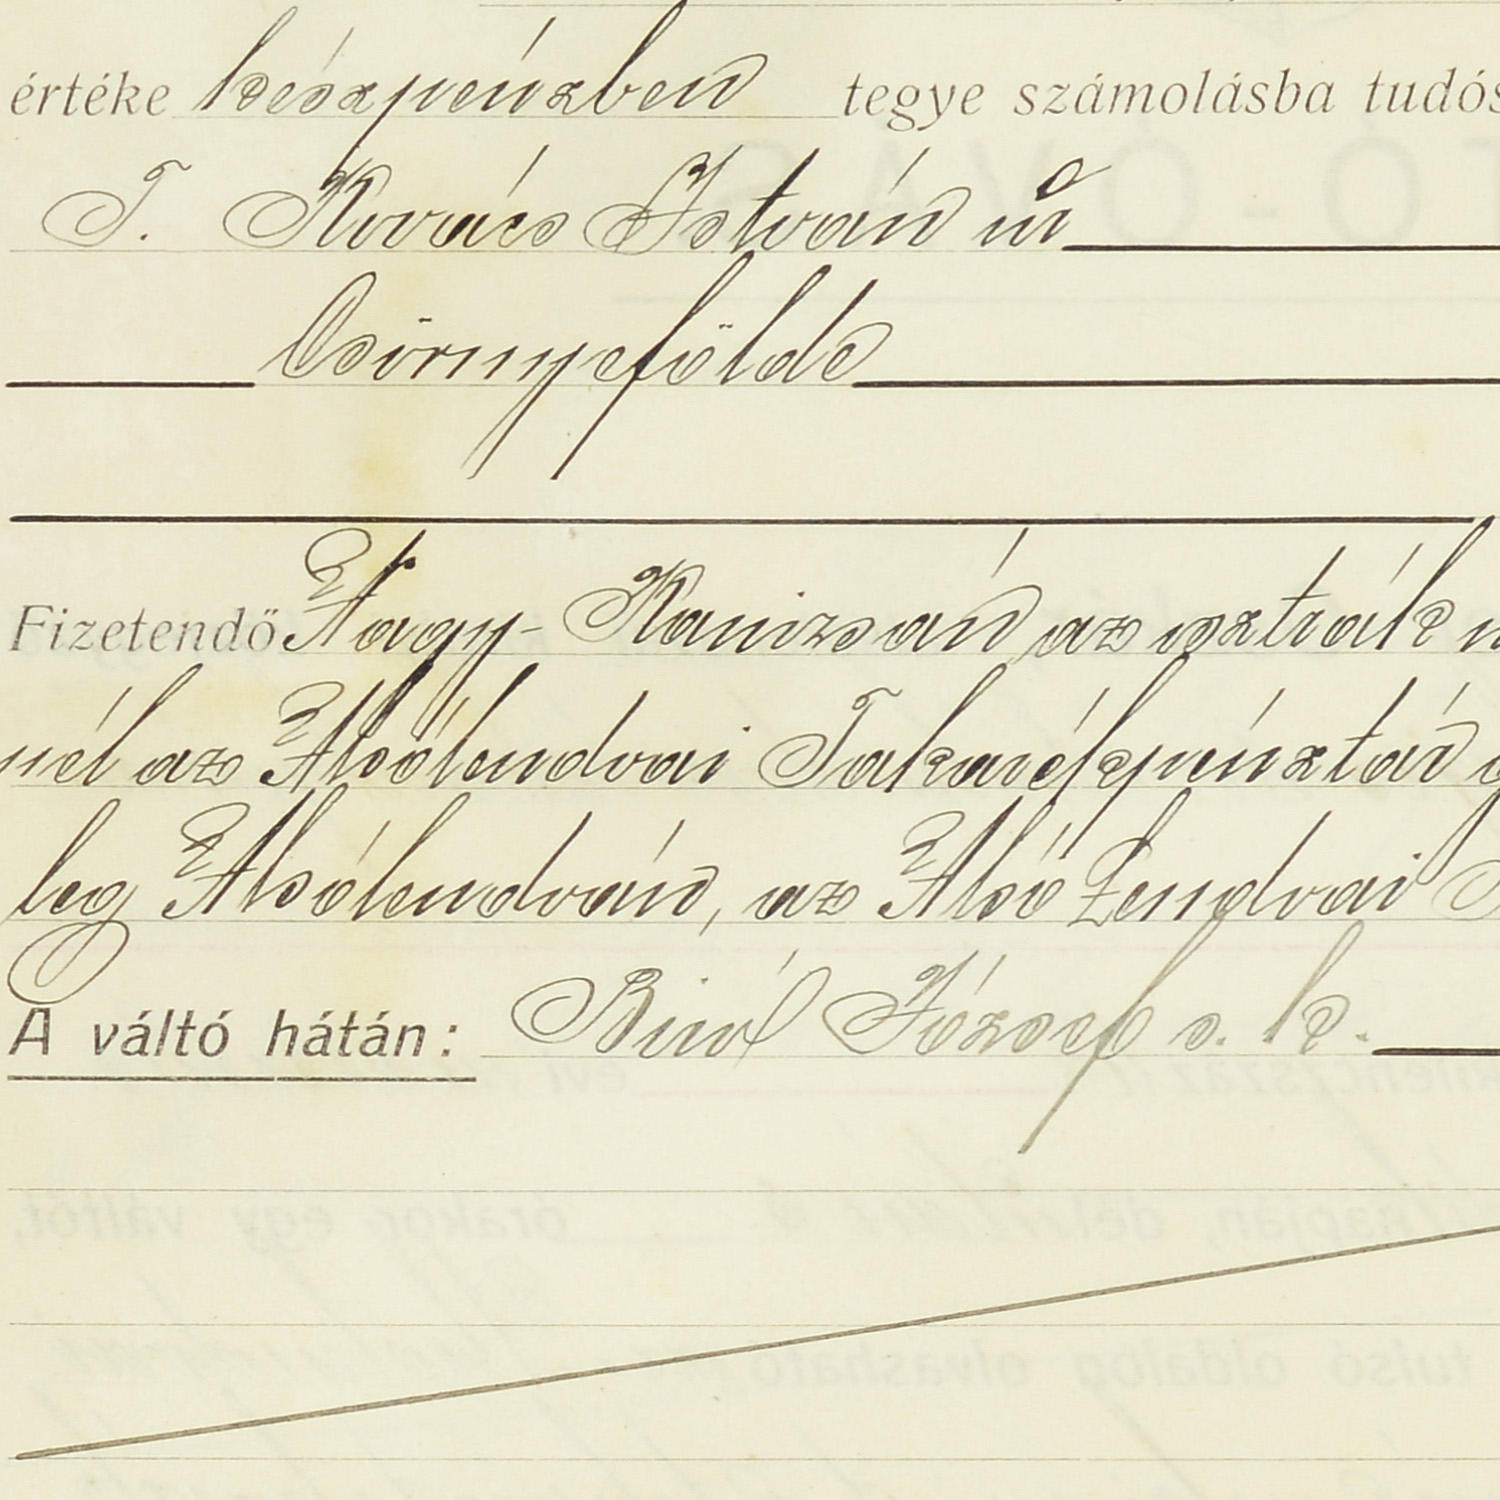 értéke készpénzben tegye számolásba
T. Kovács István úr
Csörnyefölde
Fizetendő Nagy-Kanizsán az osztrák
nél az Alsólendvai Takarékpénztár
leg Alsólendván, az Alsó Lendvai
A váltó hátán: Biró József s. k.